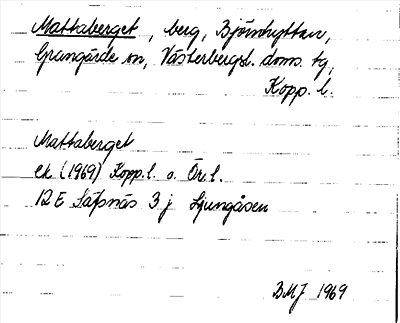 Mattaberget, berg, Björnhyttan,
Grangärde sn, Västerbergsl. doms. tg,
Kopp. l.
Mattaberget
ek (1969) Kopp. l. o. Öre l.
12E Säfsnäs 3 j Ljungåsen
BMJ 1969